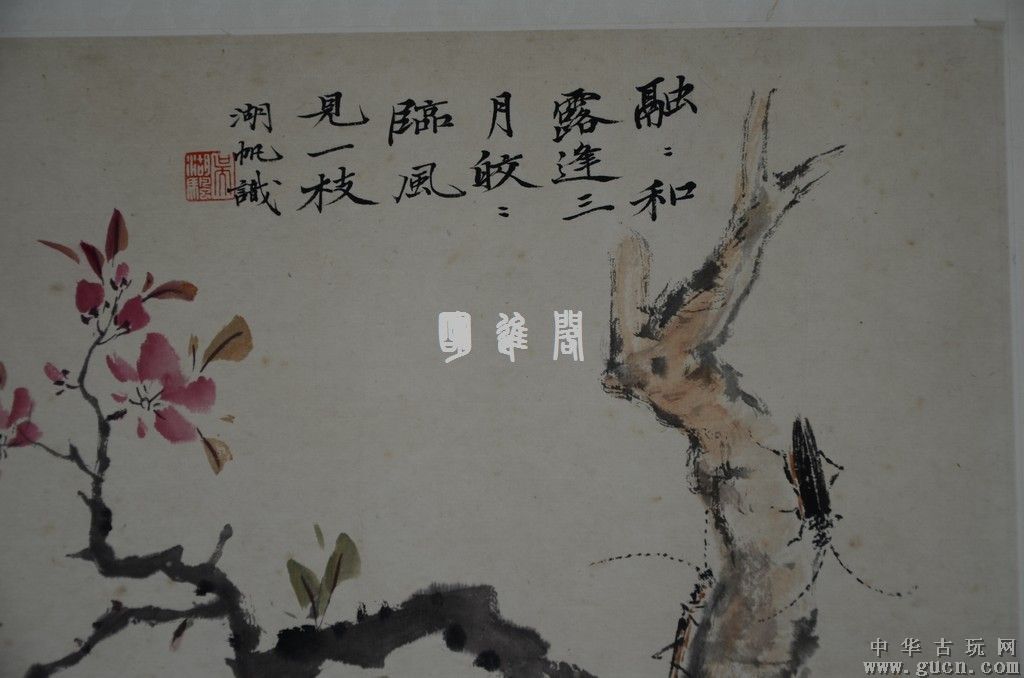 融：和
露逢三
月皎：
臨風
見一枝
湖帆識
吳湖颿
雅閣
中华古玩网
www.gucn.com